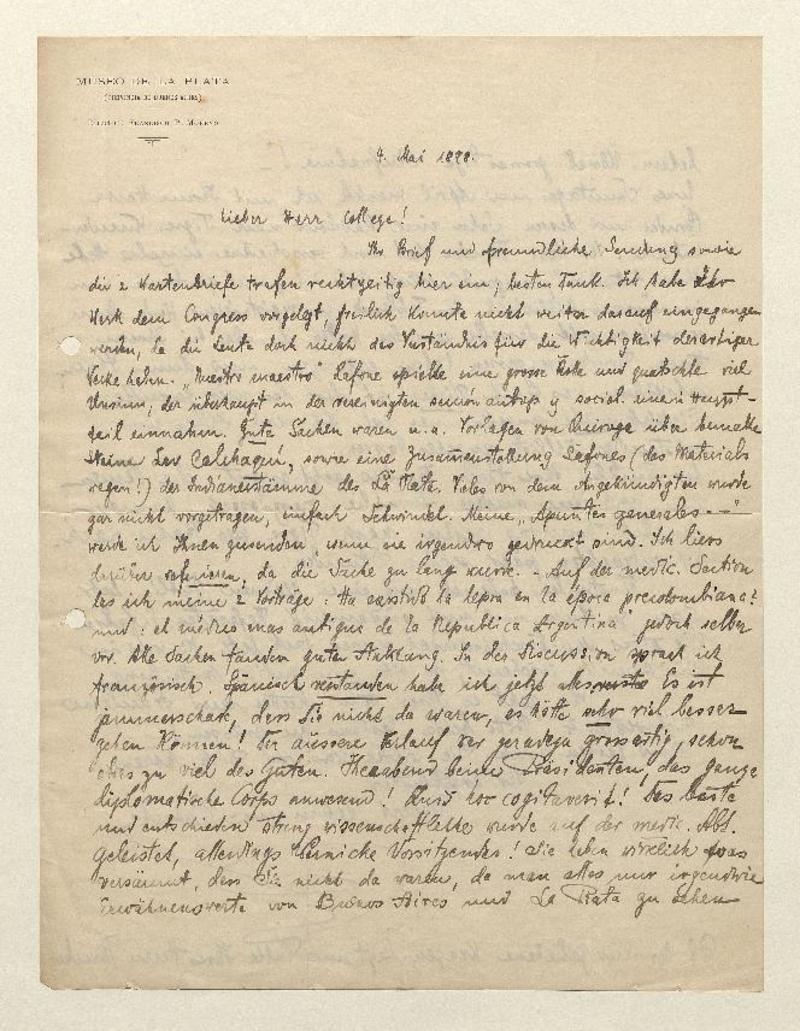 MUSEO DE LA PLATA
(PROVINCIA DE BUENOS AIRES)
FRANCISCO P. MORENO
4. Mai 1898.
Lieber Herr College!
Ihr Brief und freundliche Sendung sowie
die 2 Kartenbriefe trafen rechtzeitig hier ein; besten Dank. Ich habe Ihr
Werk dem Congress vorgelegt, freilich konnte nicht weiter darauf eingegangen
werden, da die Leute doch nicht das Verständnis für die Wichtigkeit derartiger
Werke haben. „Nuestro maestro" Lafone spielte eine grosse Rolle und quatschte viel
Unsinn, der überhaupt in der vereinigten sección antrop. y social. einen Haupt-
teil einnahm. Gute Sachen waren u. a. Vorlagen von Quiroga über bemalte
Steine der Calchaquí, sowie eine Zusammenstellung Lafones (des Materials
wegen!) der Indianerstämme des La Plata. Vieles von dem Angekündigten wurde
gar nicht vorgetragen, einfach Schwindel. Meine „Apuntes generales - -"
werde ich Ihnen zusenden, wenn sie irgendwo gedruckt sind. Ich liess
darüber referieren, da die Sache zu lang wurde. - Auf der medic. Section
las ich meine 2 Vorträge: Ha existido la lepra en la época precolombiana?
und: el médico mas antiguo de la Republica Argentina" jedoch selber
vor. Alle Sachen fanden guten Anklang. In der Discussion sprach ich
französisch. Spanisch verstanden habe ich jetzt alles Es ist
jammerschade, dass Sie nicht da waren, es hätte sehr viel besser
gehen können! Der äussere Verlauf war geradezu grossartig, schon
etwas zu viel des Guten. Theeabend beim Präsidenten, das ganze
diplomatische Corps anwesend! Quis hoc cogitaverit! Das beste
und entschieden streng wissenschaftliche wurde auf der medic. Abt.
geleistet, allerdings Wernicke Vorsitzender! Sie haben wirklich was
versäumt, dass Sie nicht da waren, da man alles nur irgendwie
Erwähnenswerte von Buenos Aires und La Plata zu sehen